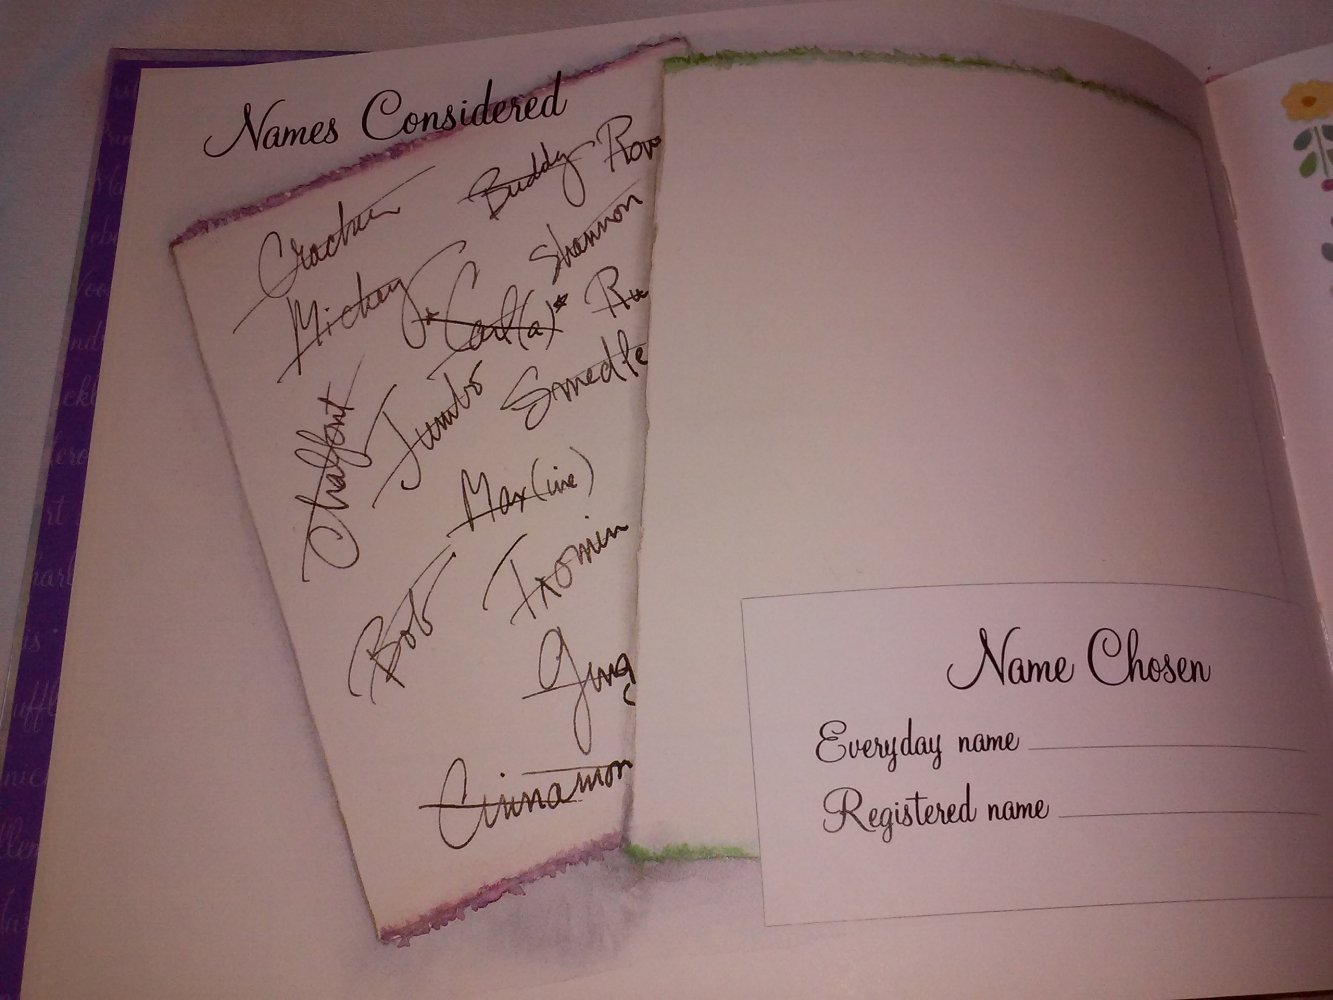 Names Considered
Cracker Buddy Rov
Mickey *Carl(a)* Shannon
Chalfont Jumbo Smedle Ru
Max(ine)
Bob Tromin
Ging
Cinnamon
Name Chosen
Everyday name
Registered name